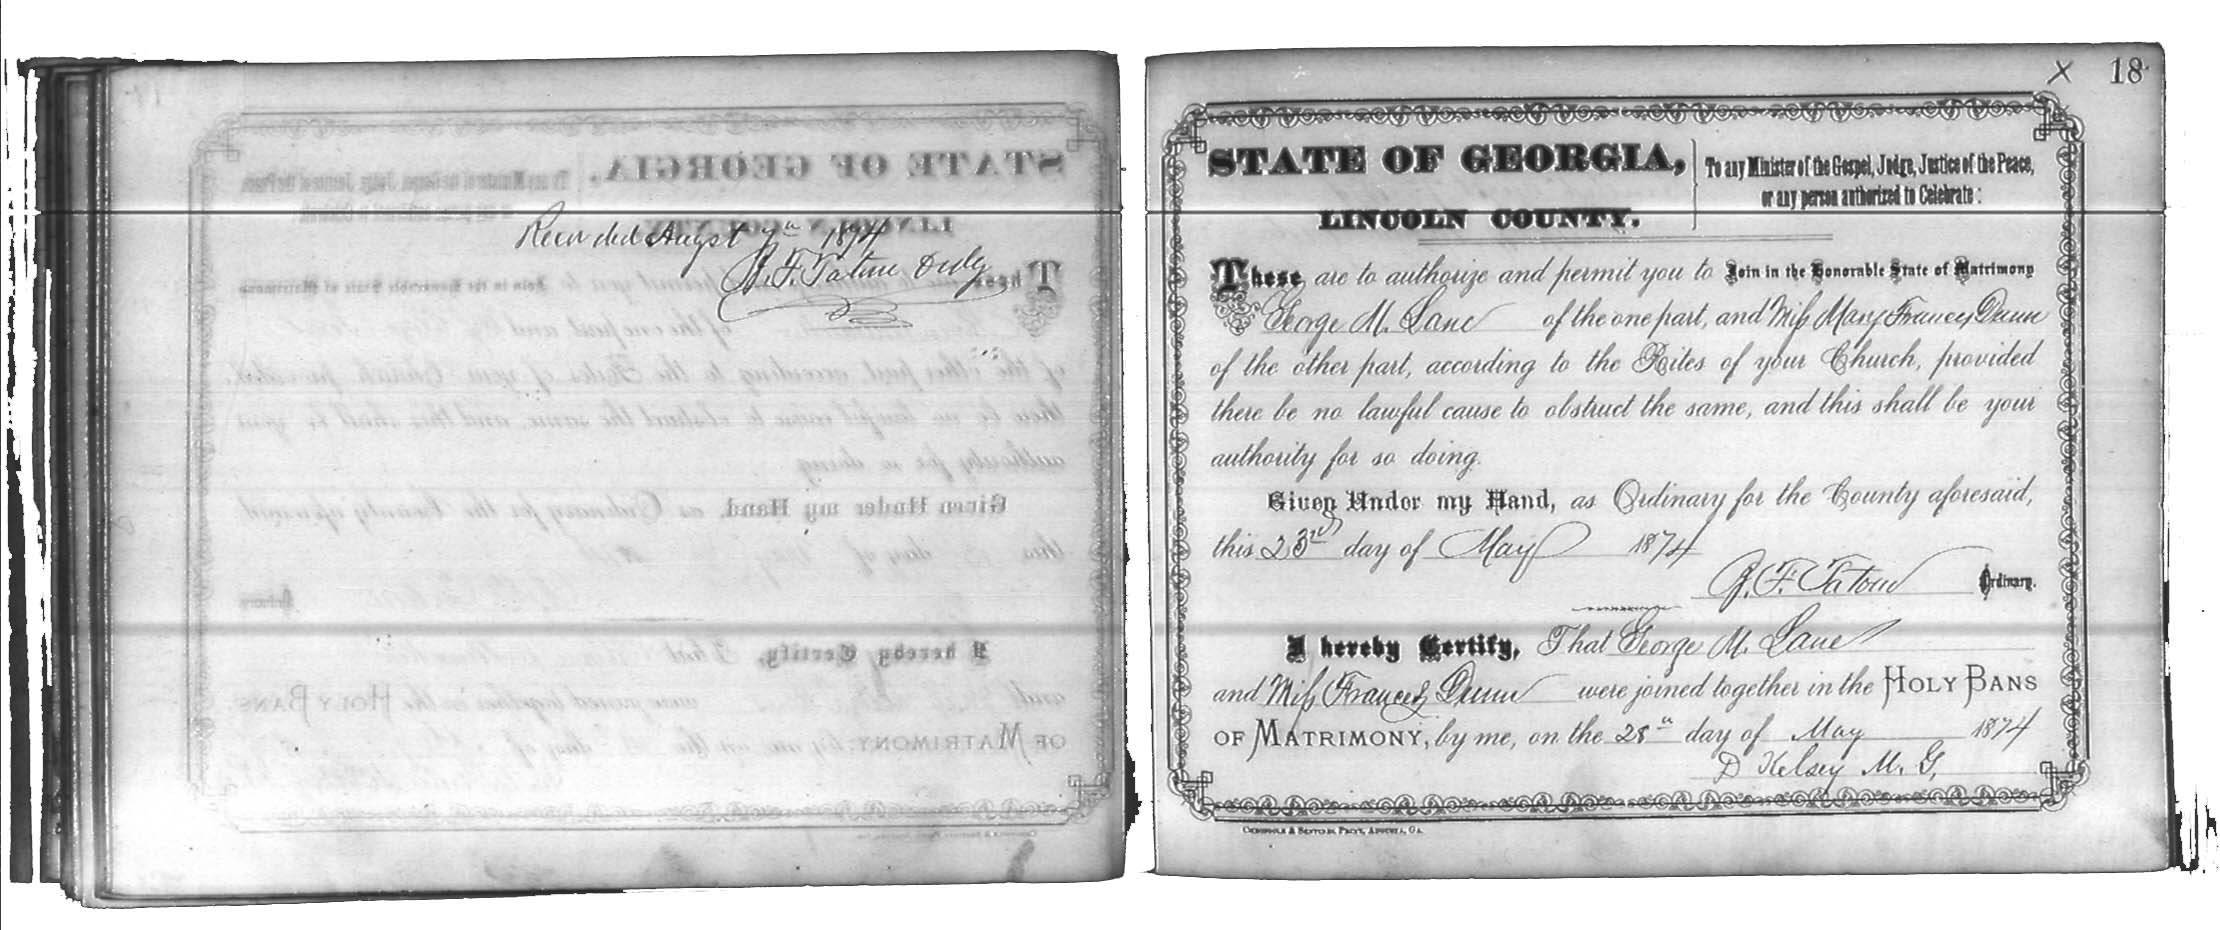 Recorded Augst 7th 1874
B. F. Tatum Ordy
X 18
STATE OF GEORGIA,
LINCOLN COUNTY.
To any Minister of the Gospel, Judge, Justice of the Peace,
or any person authorized to Celebrate:
These are to authorize and permit you to Join in the Honorable State of Matrimony
George M. Lane of the one part, and Miss Mary Frances Dunn
of the other part, according to the Rites of your Church, provided
there be no lawful cause to obstruct the same, and this shall be your
authority for so doing.
Given Under my Hand, as Ordinary for the County aforesaid,
this 23rd day of May 1874
B. F. Tatum Ordinary.
I hereby Certify, That George M. Lane
and Miss Frances Dunn were joined together in the HOLY BANS
OF MATRIMONY, by me, on the 28th day of May 1874
D Kelsey M. G.